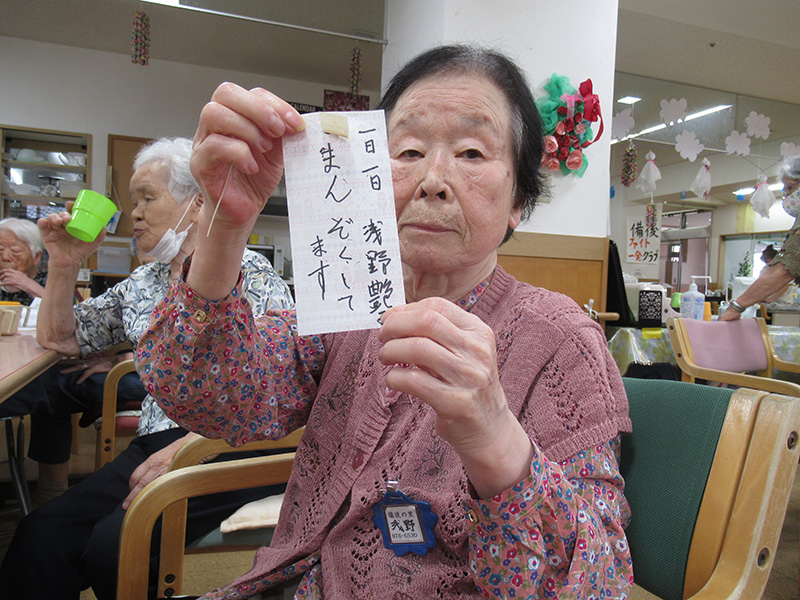 一日一日
まんぞくして
ます
浅野艶
備後の里
浅野
976-6530
備後
ファイト
一発クラブ
CALENDAR